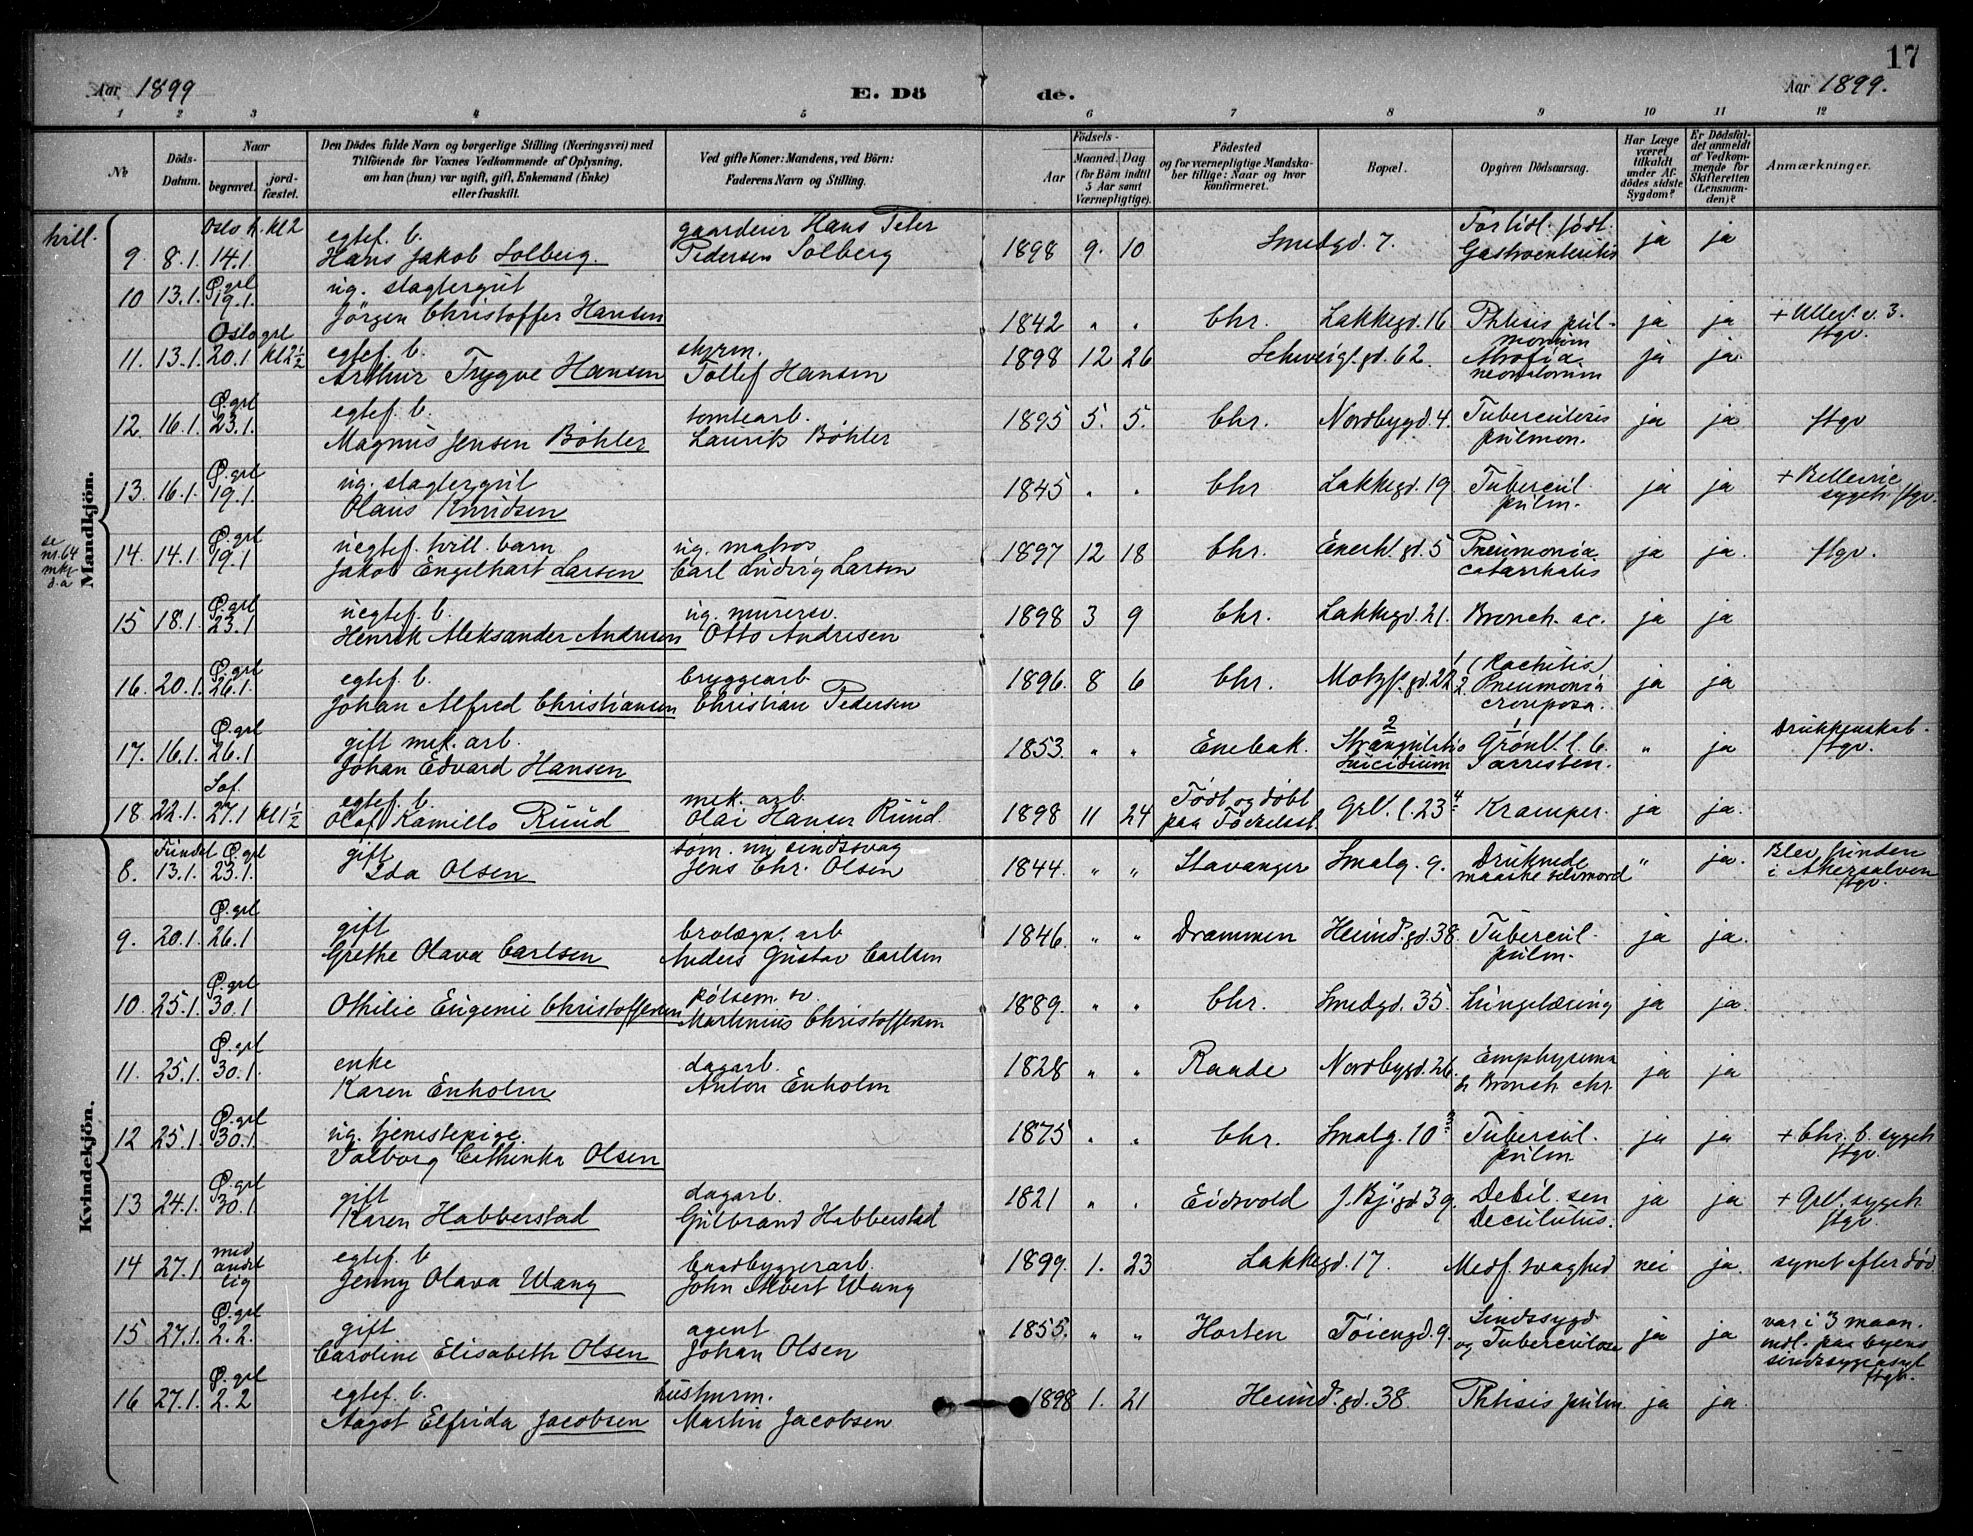 17
Aar 1899 E. Dö de. Aar 1899.
1 2 3 4 5 6 7 8 9 10 11 12
No
Döds-Datum.
Naar
begravet.
jord-fæstet.
Den Dödes fulde Navn og borgerlige Stilling (Næringsvei) med
Tilföiende for Voxnes Vedkommende af Oplysning,
om han (hun) var ugift, gift, Enkemand (Enke)
eller fraskilt.
Ved gifte Koner: Mandens, ved Börn:
Faderens Navn og Stilling.
Födsels-
Aar
Maaned. Dag
(for Börn indtil
5 Aar samt
Værnepligtige).
Födested
og for værnepligtige Mandska-
ber tillige: Naar og hvor
konfirmeret.
Bopæl.
Opgiven Dödsaarsag.
Har Læge
været
tilkaldt
under Af-
dödes sidste
Sygdom?
Er Dödsfal-
det anmeldt
af Vedkom-
mende for
Skifteretten
(Lensman-
den)?
Anmærkninger.
Mandkjön.
Oslo k. kl 2
9. 8.1. 14.1. egtef. b. Hans Jakob Solberg. gaardeier Hans Peter Pedersen Solberg 1898 9. 10 Smedgd. 7. For tidl. födt. Gastroenteritis ja ja
Ø.grl
10 13.1. 19.1. ug. slagtergut Jörgen Christoffer Hansen 1842 " " Chr. Lakkegd. 16 Phtisis pulmonum ja ja + Ullev. v. 3. ftgv.
Oslo grl
11. 13.1. 20.1 kl 2½ egtef. b. Arthur Trygve Hansen styrm. Tollef Hansen 1898 12 26 Schweig. gd. 62. Atrofia neonatorum ja ja
Ø.grl
12. 16.1. 23.1. egtef. b. Magnus Jensen Böhler tomtearb. Lauritz Böhler 1895 5. 5. Chr. Nordbygd. 4. Tuberculosis pulmon. ja ja ftgv
Ø.grl
13. 16.1. 19.1. ug. slagtergut Olaus Knudsen 1845 " " Chr Lakkegd. 19. Tubercul. pulm. ja ja + Bellevue sygeh. ftgv.
se nr. 64
Ø.grl
14. 14.1. 19.1 uegtef. tvill. barn Jakob Engelhart Larsen ug. matros Carl Ludvig Larsen 1897 12 18 Chr. Enerh. gd. 5 Pneumonia catarrhalis ja ja. ftgv.
Ø.grl
15 18.1. 23.1 uegtef. b. Henrik Aleksander Andresen ug. murersv. Otto Andresen 1898 3 9 Chr. Lakkegd. 21. Bronch. ac. ja ja
Ø.grl
16. 20.1. 26.1. egtef. b. Johan Alfred Christiansen bryggearb Christian Pedersen 1896. 8 6 Chr. Motzf. gd. 22 1 (Rachitis) 2. Pneumonia crouposa. ja ja
Ø.grl
17. 16.1. 26.1 gift mek. arb. Johan Edvard Hansen 1853. " " Enebak. 2 Strangulatio Suicidium 1 Grönl. l. 6. I arresten. " ja Drukkenskab. ftgv.
Sof.
18. 22.1. 27.1 kl 1½ egtef. b. Olaf Kamillo Ruud mek. arb. Olai Hansen Ruud. 1898 11 24 Födt og döbt paa Födselsst. Grl. l. 23 Kramper. ja ja.
Kvindekjön.
Fundet Ø.grl
8. 13.1. 23.1. gift Ida Olsen Jens Chr. Olsen 1844. " " Stavanger Smalg. 9. Druknede maaske selvmord " ja. Blev funden i Akerselven ftgv.
Ø.grl
9. 20.1. 26.1 gift Grethe Olava Carlsen brolægn. arb Anders Gustav Carlsen 1846. " " Drammen Heimd. gd. 38. Tubercul. pulm. ja ja.
Ø.grl
10. 25.1. 30.1 Othilie Eugenie Christoffersen pölsem. sv. Martinius Christoffersen 1889. " " Chr. Smedgd. 35. Lungetæring ja ja.
Ø.grl
11. 25.1. 30.1. enke Karen Enholm dagarb. Anton Enholm 1828 " " Raade Nordbygd. 26. Emphysema & Bronch. chr. ja ja
Ø.grl
12 25.1. 30.1. ug. tjenestepige. Valborg Cathinka Olsen 1875 " " Chr. Smalg. 10 Tubercul. pulm. ja ja + Chr. b. sygeh ftgv.
Ø.grl
13 24.1. 30.1 gift Karen Habberstad dagarb. Gulbrand Habberstad 1821 " " Eidsvold J. Bj. gd 39. Debil. sen Decubitus. ja ja + Grl. sygeh. ftgv
14 27.1. med andet lig egtef. b Jenny Olava Wang baadbyggerarb. John Albert Wang 1899. 1. 23 Lakkegd. 17. Medf. svaghed nei ja. synet efter död.
Ø.grl
15 27.1. 2.2. gift Caroline Elisabeth Olsen agent Johan Olsen 1855. " " Horten Töiengd. 9. Sindssygd. og Tuberculose ja ja var i 3 maan. indl. paa byens sindssygeasyl ftgv.
Ø.grl
16 27.1. 2.2 egtef. b. Aagot Elfrida Jacobsen Martin Jacobsen 1898 1. 21 Heimd. gd. 38. Phtisis pulm. ja ja.